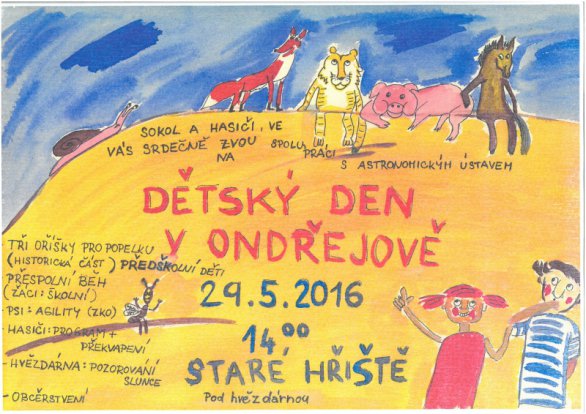 SOKOL A HASIČI, VE SPOLUPRÁCI
VÁS SRDEČNĚ ZVOU S ASTRONOMICKÝM ÚSTAVEM
NA
DĚTSKÝ DEN
V ONDŘEJOVĚ
29.5.2016
14 00
STARÉ HŘIŠTĚ
Pod hvězdárnou
- TŘI OŘÍŠKY PRO POPELKU
(HISTORICKÁ ČÁST) PŘEDŠKOLNÍ DĚTI
- PŘESPOLNÍ BĚH
(ŽÁCI: ŠKOLNÍ)
PSI: AGILITY (ZKO)
- HASIČI: PROGRAM +
PŘEKVAPENÍ
- HVĚZDÁRNA: POZOROVÁNÍ
SLUNCE
- OBČERSTVENÍ